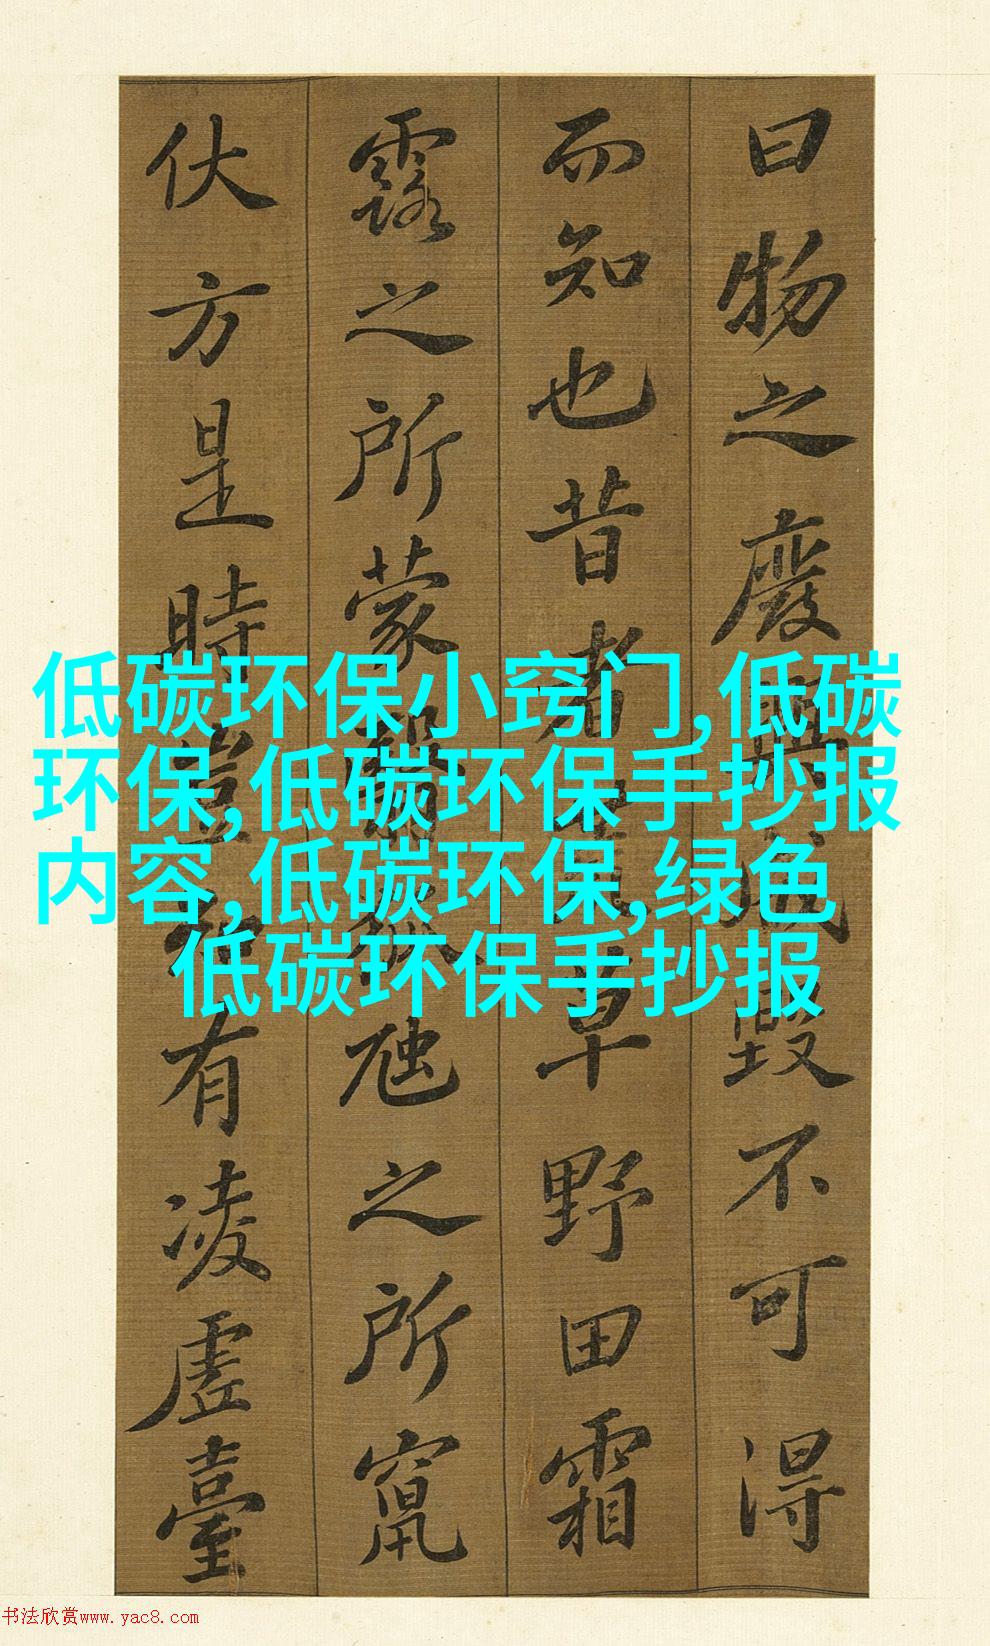 曰物之廢興成毀不可得
而知也昔者荒草野田霜
露之所蒙翳狐虺之所竄
伏方是時豈知有凌虛臺
低碳环保小窍门,低碳
环保,低碳环保手抄报
内容,低碳环保,绿色
低碳环保手抄报
书法欣赏www.yac8.com